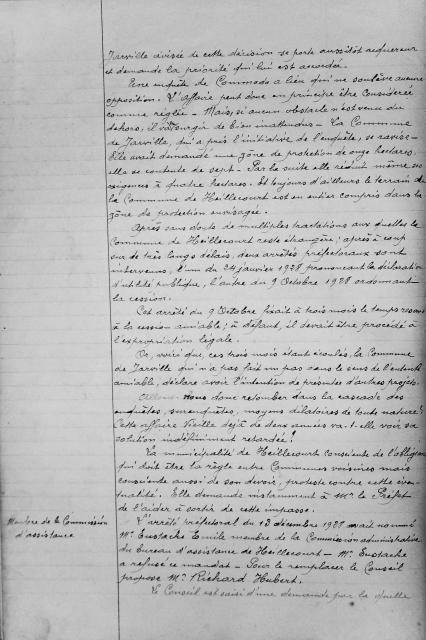 Jarville avisée de cette décision se porte aussitôt acquéreur
et demande la priorité qui lui est accordée.
Une enquête de Commodo a lieu qui ne soulève aucune
opposition. L'affaire peut donc en principe être considérée
comme réglée - Mais, si aucun obstacle n'est venu du
dehors, il va surgir de bien inattendus - La Commune
de Jarville, qui a pris l'initiative de l'enquête, se ravise -
Elle avait demandé une zône de protection de onze hectares,
elle se contente de sept - Par la suite elle réduit même ses
exigences à quatre hectares. Et toujours d'ailleurs le terrain de
la Commune de Heillecourt est en entier compris dans la
zône de protection envisagée.
Après sans doute de multiples tractations auxquelles la
Commune de Heillecourt reste étrangère; après à coup
sur de très longs délais, deux arrêtés préfectoraux sont
intervenus, l'un du 24 janvier 1928 prononçant la déclaration
d'utilité publique, l'autre du 9 Octobre 1928 ordonnant
la cession.
Cet arrêté du 9 Octobre fixait à trois mois le temps
à la cession amiable; à défaut, il devrait être procédé à
l'expropriation légale.
Or, voici que, ces trois mois étant écoulés, la Commune
de Jarville qui n'a pas fait un pas dans le sens de l'entente
amiable, déclare avoir l'intention de présenter d'autres projets.
Allons-nous donc retomber dans la cascade des
enquêtes, surenquêtes, moyens dilatoires de toute nature?
Cette affaire vieille déjà de deux années va-t-elle voir sa
solution indéfiniment retardée!
La municipalité de Heillecourt consciente de l'obligeance
qui doit être la règle entre Communes voisines mais
consciente aussi de son devoir, proteste contre cette éven-
tualité. Elle demande instamment à Mr le Préfet
de l'aider à sortir de cette impasse.
Membre de la Commission
d'assistance
L'arrêté préfectoral du 13 décembre 1928 avait nommé
Mr Eustache Emile membre de la Commission administrative
du bureau d'assistance de Heillecourt - Mr Eustache
a refusé ce mandat - Pour le remplacer le Conseil
propose Mr Richard Hubert.
Le Conseil est saisi d'une demande par laquelle